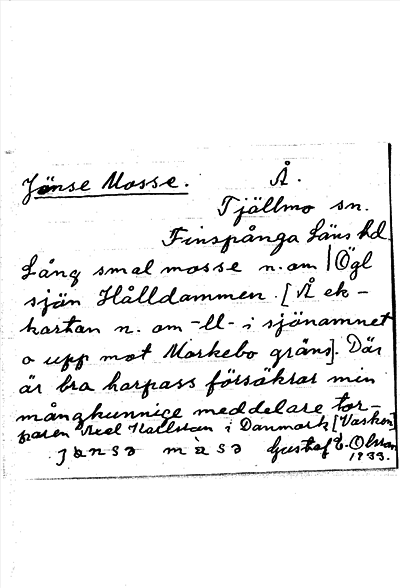 Jönse Mosse. Å.
Tjällmo sn.
Finspånga Läns hd.
Lång smal mosse n. om | Ögl
sjön Hålldammen. [Å ek-
kartan n. om -ll- i sjönamnet
o upp mot Morkebo gräns]. Där
är bra harpass försäkrar min
mångkunnige meddelare tor-
paren Axel Karlsson i Danmark [Vaskon]
jɵnsə mɑ̀sə Gustaf E. Olsson
1933.